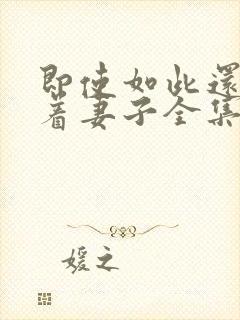 即使如此還
着妻子全集
媛之